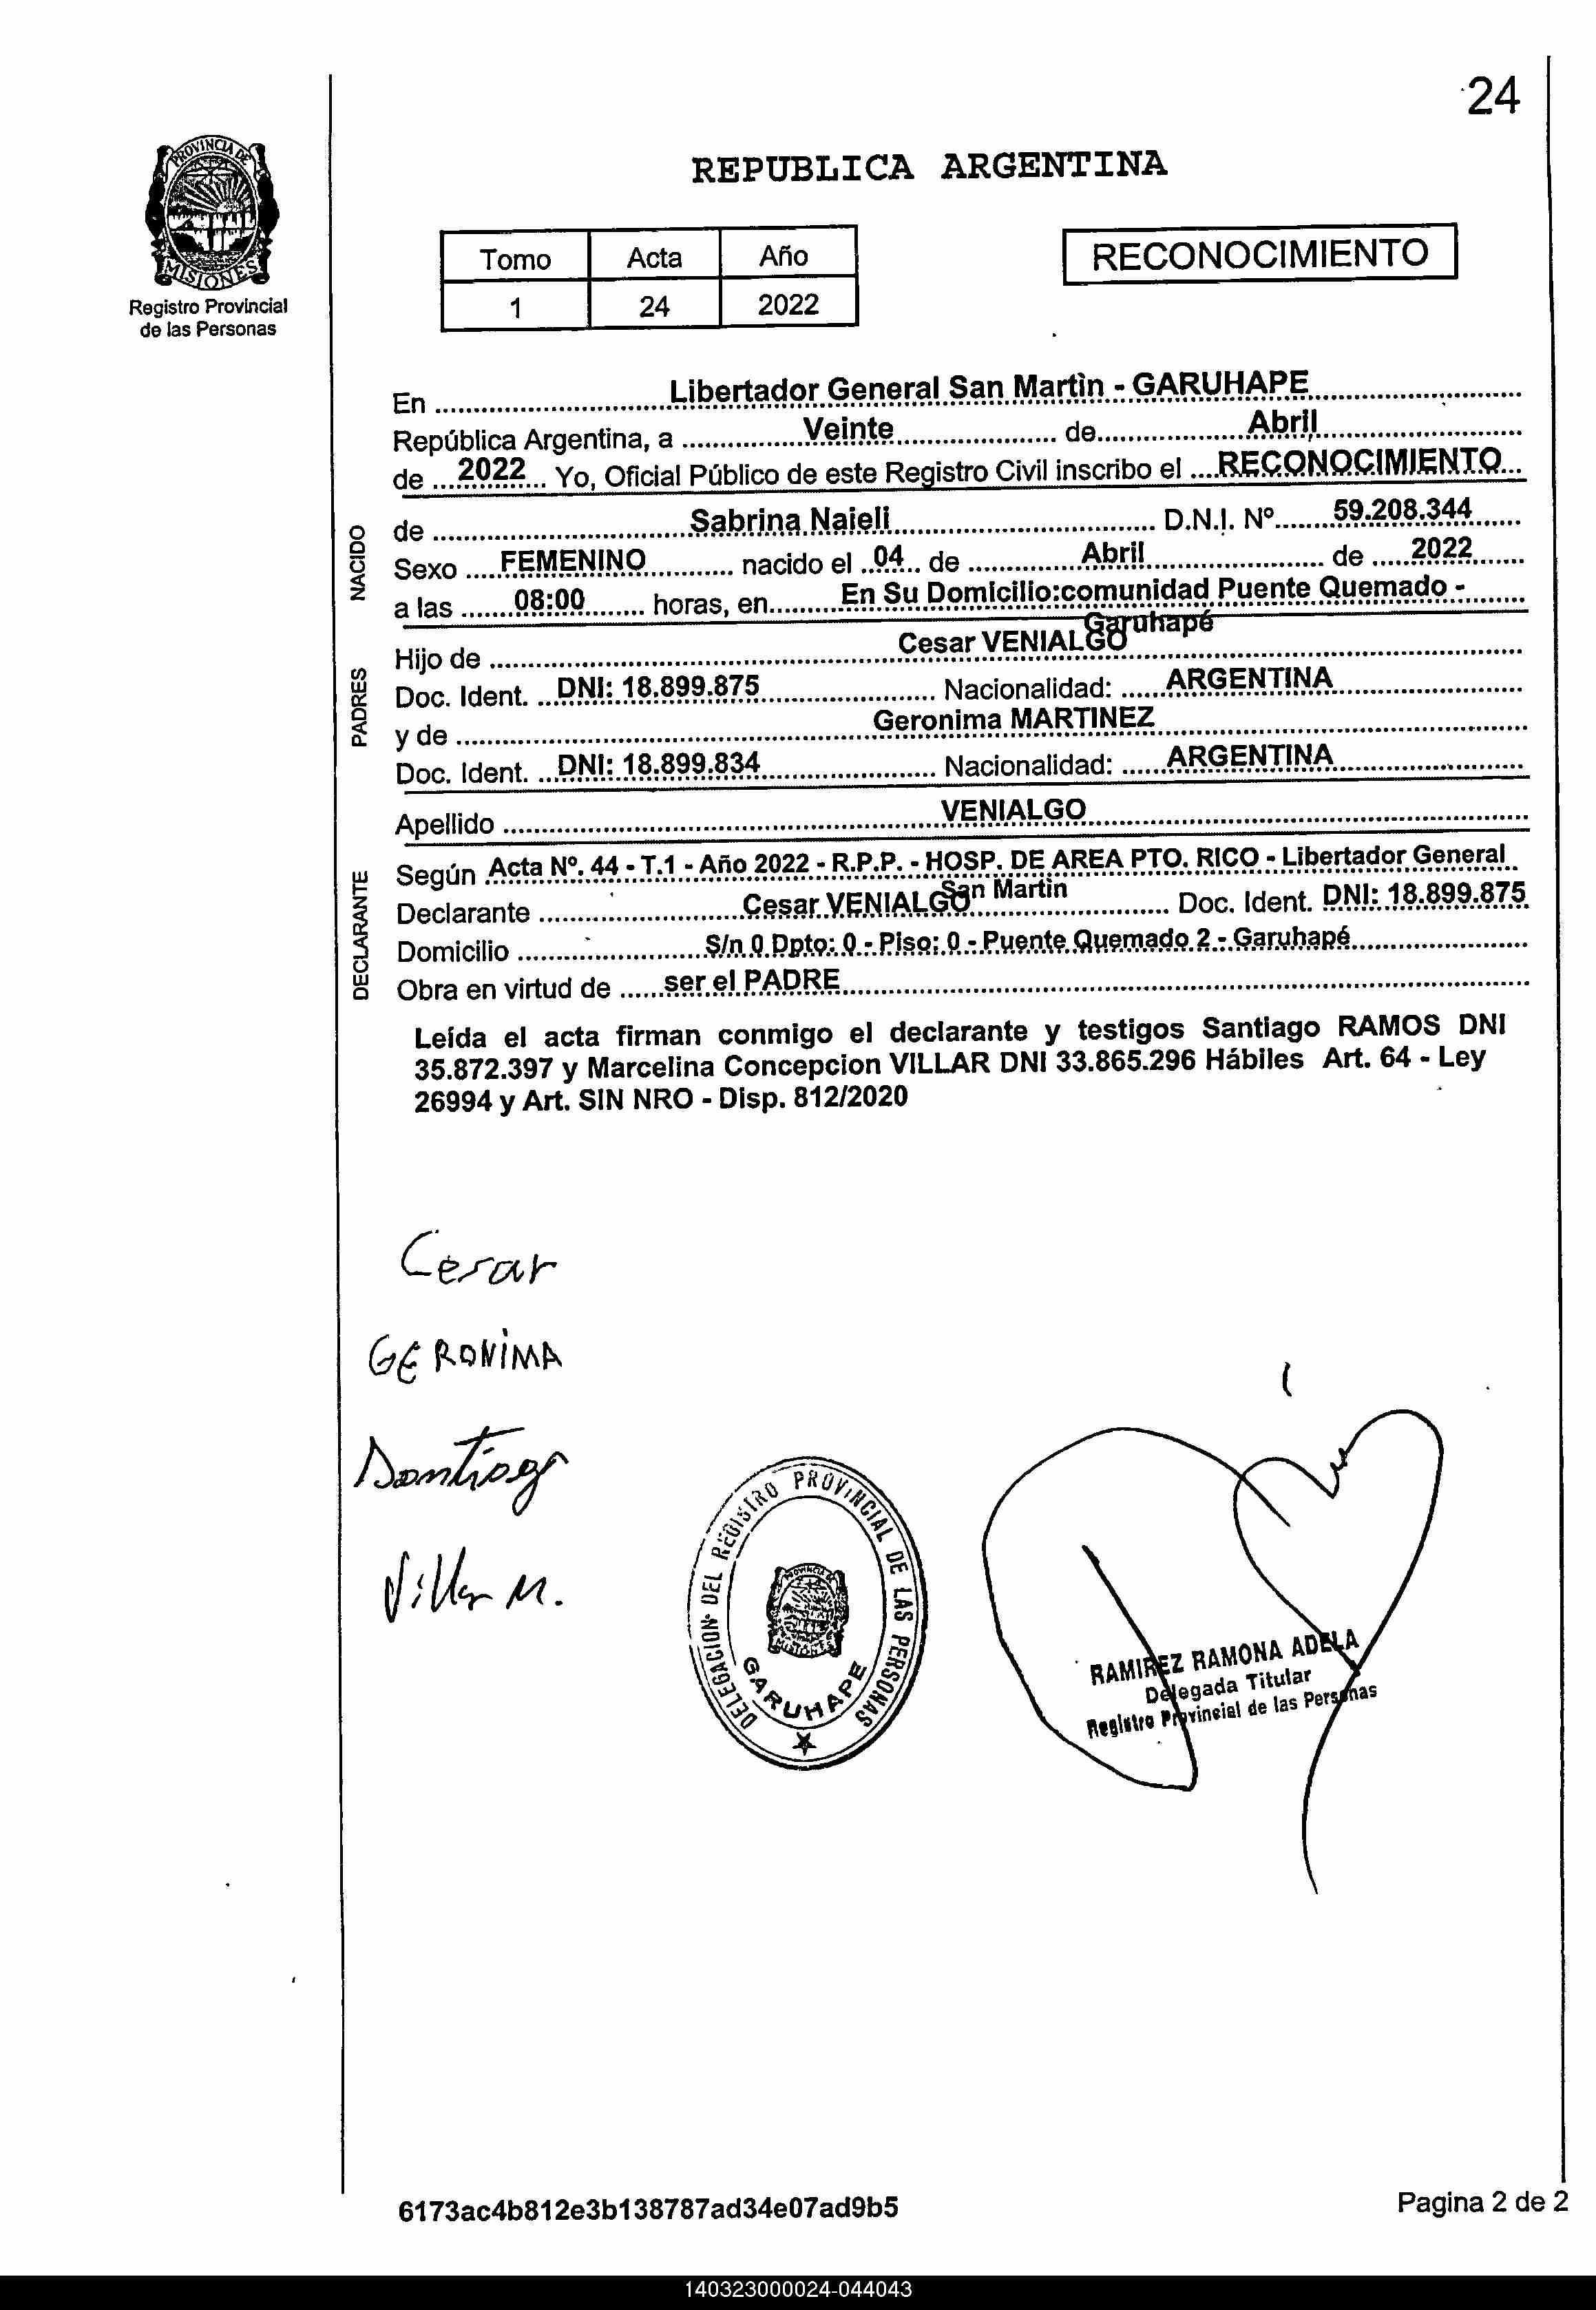 24
PROVINCIA DE
MISIONES
Registro Provincial
de las Personas
REPUBLICA ARGENTINA
Tomo Acta Año
1 24 2022
RECONOCIMIENTO
En Libertador General San Martìn - GARUHAPE
República Argentina, a Veinte de Abril
de 2022 Yo, Oficial Público de este Registro Civil inscribo el RECONOCIMIENTO
NACIDO
de Sabrina Naieli D.N.I. Nº 59.208.344
Sexo FEMENINO nacido el 04 de Abril de 2022
a las 08:00 horas, en En Su Domicilio:comunidad Puente Quemado -
Garuhapé
PADRES
Hijo de Cesar VENIALGO
Doc. Ident. DNI: 18.899.875 Nacionalidad: ARGENTINA
y de Geronima MARTINEZ
Doc. Ident. DNI: 18.899.834 Nacionalidad: ARGENTINA
Apellido VENIALGO
DECLARANTE
Según Acta Nº. 44 - T.1 - Año 2022 - R.P.P. - HOSP. DE AREA PTO. RICO - Libertador General
San Martìn
Declarante Cesar VENIALGO Doc. Ident. DNI: 18.899.875
Domicilio S/n 0 Dpto: 0 - Piso: 0 - Puente Quemado 2 - Garuhapé
Obra en virtud de ser el PADRE
Leída el acta firman conmigo el declarante y testigos Santiago RAMOS DNI
35.872.397 y Marcelina Concepcion VILLAR DNI 33.865.296 Hábiles Art. 64 - Ley
26994 y Art. SIN NRO - Disp. 812/2020
Cesar
GERONIMA
Santiago
Villar M.
DELEGACION DEL REGISTRO PROVINCIAL DE LAS PERSONAS
PROVINCIA DE
MISIONES
GARUHAPE
RAMIREZ RAMONA ADELA
Delegada Titular
Registro Provincial de las Personas
6173ac4b812e3b138787ad34e07ad9b5
Pagina 2 de 2
140323000024-044043